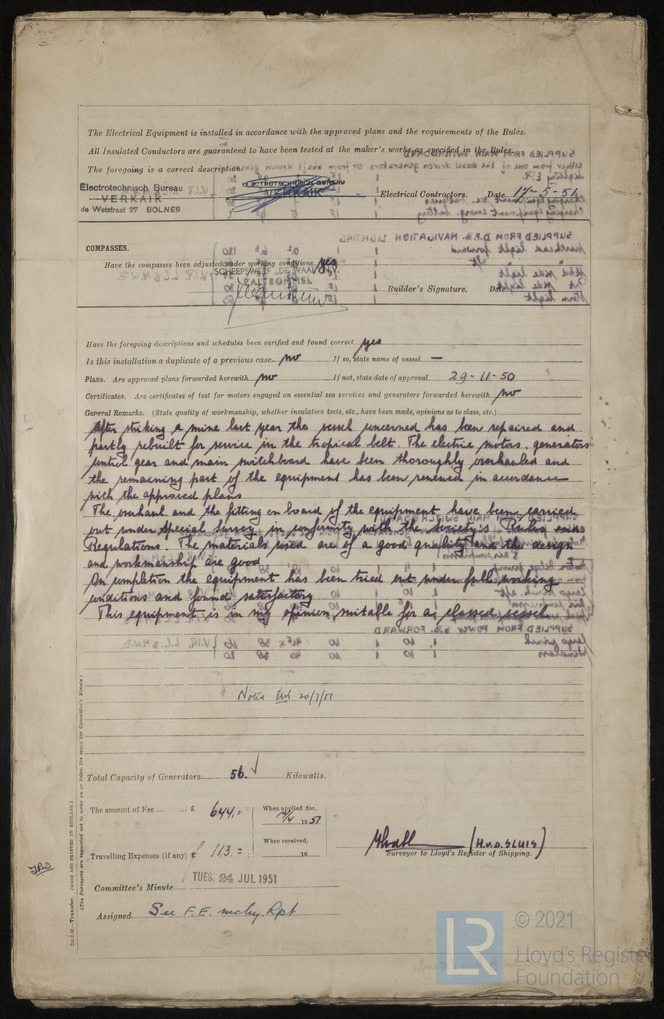 The Electrical Equipment is installed in accordance with the approved plans and the requirements of the Rules.
All Insulated Conductors are guaranteed to have been tested at the maker's works as specified in the Rules.
The foregoing is a correct description.
Electrotechnisch Bureau
VERKAIK
de Wetstraat 27 BOLNES
ELECTROTECHNISCH BUREAU
VERKAIK
Electrical Contractors. Date 17-5-51
COMPASSES.
Have the compasses been adjusted under working conditions yes
SCHEEPSWERF „DE WAAL"
ZALTBOMMEL
Builder's Signature. Date
Have the foregoing descriptions and schedules been verified and found correct yes
Is this installation a duplicate of a previous case no If so, state name of vessel —
Plans. Are approved plans forwarded herewith no If not, state date of approval 29-11-50
Certificates. Are certificates of test for motors engaged on essential sea services and generators forwarded herewith no
General Remarks. (State quality of workmanship, whether insulation tests, etc., have been made, opinions as to class, etc.)
After striking a mine last year the vessel concerned has been repaired and
partly rebuilt for service in the tropical belt. The electric motors, generators
control gear and main switchboard have been thoroughly overhauled and
the remaining part of the equipment has been renewed in accordance
with the approved plans
The overhaul and the fitting on board of the equipment have been carried
out under Special Survey in conformity with the Society's Rules and
Regulations. The materials used are of a good quality and the design
and workmanship are good
On completion the equipment has been tried out under full working
conditions and found satisfactory
This equipment is in my opinion suitable for a classed vessel
Noted 20/7/51
Total Capacity of Generators 56. Kilowatts.
The amount of Fee ... ... £ 644.= When applied for, 1951
When received, 19
Travelling Expenses (if any) £ 113.=
(H.v.D. SLUIS)
Surveyor to Lloyd's Register of Shipping.
Committee's Minute TUES. 24 JUL 1951
Assigned See F.E. mchy. Rpt
© 2021
LR
Lloyd's Register
Foundation